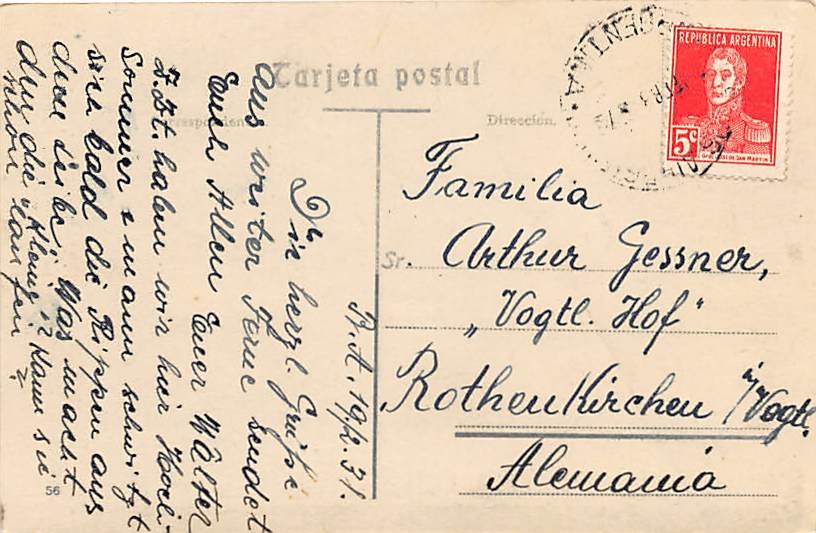 Tarjeta postal
Correspondencia.
Dirección.
REPUBLICA ARGENTINA
5c
DE SAN MARTIN
Familia
Sr. Arthur Gessner,
„Vogtl. Hof"
Rothenkirchen i/Vogtl.
Alemania
B.A. 19/2.31.
Die herzl. Grüße
Aus weiter Ferne sendet
Euch Allen Euer Walter
Z.Zt. haben wir hier Hoch-
Sommer & mann schwitzt
sich bald die Rippen aus
dem Leibe. Was macht
den die Kleine, kann sie
schon laufen?
56